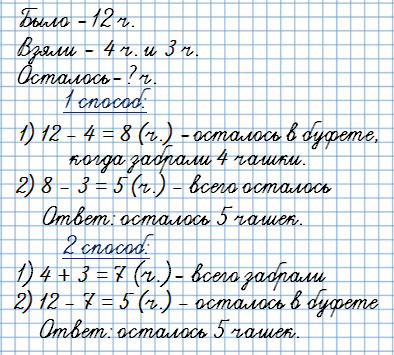 Было - 12 ч.
Взяли - 4 ч. и 3 ч.
Осталось - ? ч.
1 способ:
1) 12 - 4 = 8 (ч.) - осталось в буфете,
когда забрали 4 чашки.
2) 8 - 3 = 5 (ч.) - всего осталось
Ответ: осталось 5 чашек.
2 способ:
1) 4 + 3 = 7 (ч.) - всего забрали
2) 12 - 7 = 5 (ч.) - осталось в буфете
Ответ: осталось 5 чашек.